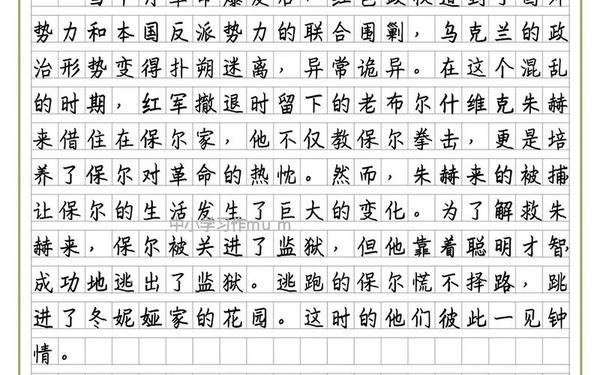 势力和本国反派势力的联合围剿，乌克兰的政
治形势变得扑朔迷离，异常诡异。在这个混乱
的时期，红军撤退时留下的老布尔什维克朱赫
来借住在保尔家，他不仅教保尔拳击，更是培
养了保尔对革命的热忱。然而，朱赫来的被捕
让保尔的生活发生了巨大的变化。为了解救朱
赫来，保尔被关进了监狱，但他靠着聪明才智
成功地逃出了监狱。逃跑的保尔慌不择路，跳
进了冬妮娅家的花园。这时的他们彼此一见钟
情。